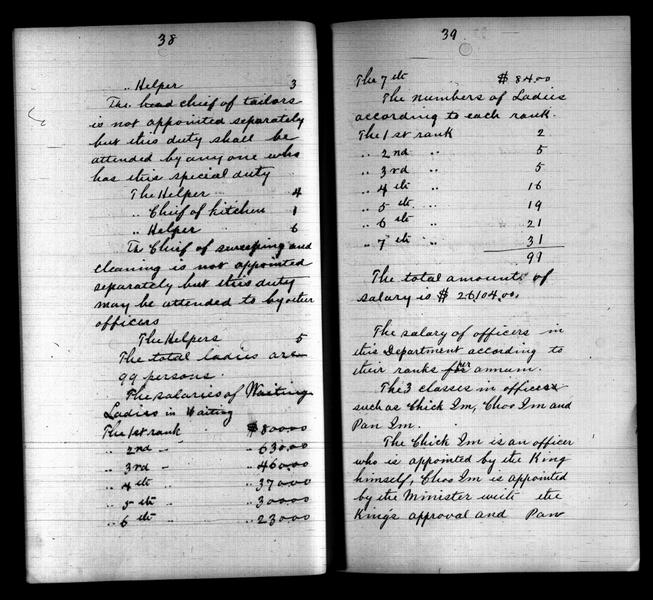 38
" Helper 3
The head chief of tailors
is not appointed separately
but this duty shall be
attended by any one who
has this special duty
The Helper 4
" Chief of kitchen 1
" Helper 6
The Chief of sweeping and
cleaning is not appointed
separately but this duty
may be attended to by other
officers
The Helpers 5
The total ladies are
99 persons.
The salaries of Waiting
Ladies in Waiting
The 1st rank $80000
" 2nd " " 63000
" 3rd " " 46000
" 4th " " 37000
" 5th " " 30000
" 6th " " 23000
39
The 7th $84.00
The numbers of Ladies
according to each rank.
The 1st rank 2
" 2nd " 5
" 3rd " 5
" 4th " 16
" 5th " 19
" 6th " 21
" 7th " 31
99
The total amounts of
salary is $26104.00.
The salary of officers in
this Department according to
their ranks per annum.
The 3 classes in offices
such as Chick Im, Choo Im and
Pan Im.
The Chick Im is an officer
who is appointed by the King
himself, Choo Im is appointed
by the Minister with the
King's approval and Pan